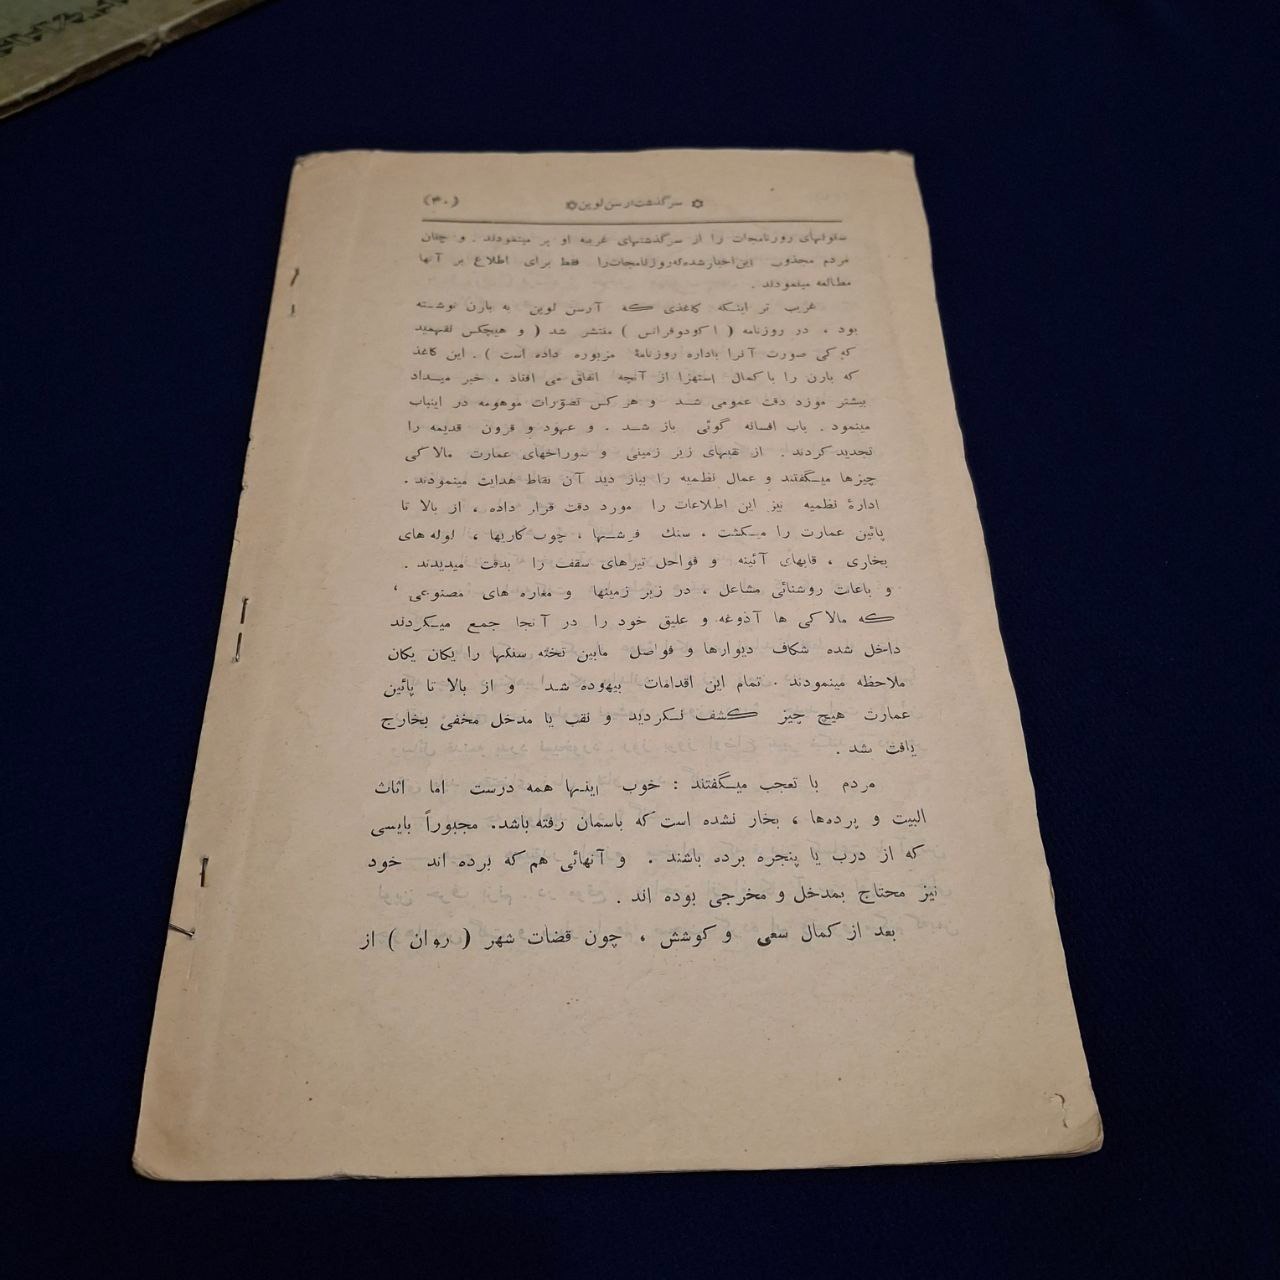 سرگذشت ارسن لوپن (۳۰)
ستونهای روزنامجات را از سرگذشتهای غریبه او پر مینمودند . و چنان
مردم مجذوب این‌اخبارشده‌که‌روزنامجات‌را فقط برای اطلاع بر آنها
مطالعه مینمودند .
غریب تر اینکه کاغذی که آرسن لوپن به بارن نوشته
بود ، در روزنامه ( اکودوفرانس ) منتشر شد ( و هیچکس نفهمید
که کی صورت آنرا باداره روزنامهٔ مزبوره داده است ) . این کاغذ
که بارن را با کمال استهزا از آنچه اتفاق می افتاد ، خبر میداد
بیشتر مورد دقت عمومی شد و هر کس تصوّرات موهومه در اینباب
مینمود . باب افسانه گوئی باز شد . و عهود و قرون قدیمه را
تجدید کردند . از نقبهای زیر زمینی و سوراخهای عمارت مالاکی
چیزها میگفتند و عمال نظمیه را بباز دید آن نقاط هدایت مینمودند .
ادارهٔ نظمیه نیز این اطلاعات را مورد دقت قرار داده ، از بالا تا
پائین عمارت را میگشت ، سنك فرشها ، چوب کاریها ، لوله های
بخاری ، قابهای آئینه و فواحل تیرهای سقف را بدقت میدیدند .
و باعات روشنائی مشاعل ، در زیر زمینها و مغاره های مصنوعی ،
که مالاکی ها آذوغه و علیق خود را در آنجا جمع میکردند
داخل شده شکاف دیوارها و فواصل مابین تخته سنگها را یکان یکان
ملاحظه مینمودند . تمام این اقدامات بیهوده شد و از بالا تا پائین
عمارت هیچ چیز کشف نگردید و نقب یا مدخل مخفی بخارج
یافت شد .
مردم با تعجب میگفتند : خوب اینها همه درست اما اثاث
البیت و پرده‌ها ، بخار نشده است که باسمان رفته باشد. مجبوراً بایسی
که از درب یا پنجره برده باشند . و آنهائی هم که برده اند خود
نیز محتاج بمدخل و مخرجی بوده اند .
بعد از کمال سعی و کوشش ، چون قضات شهر ( روان ) از